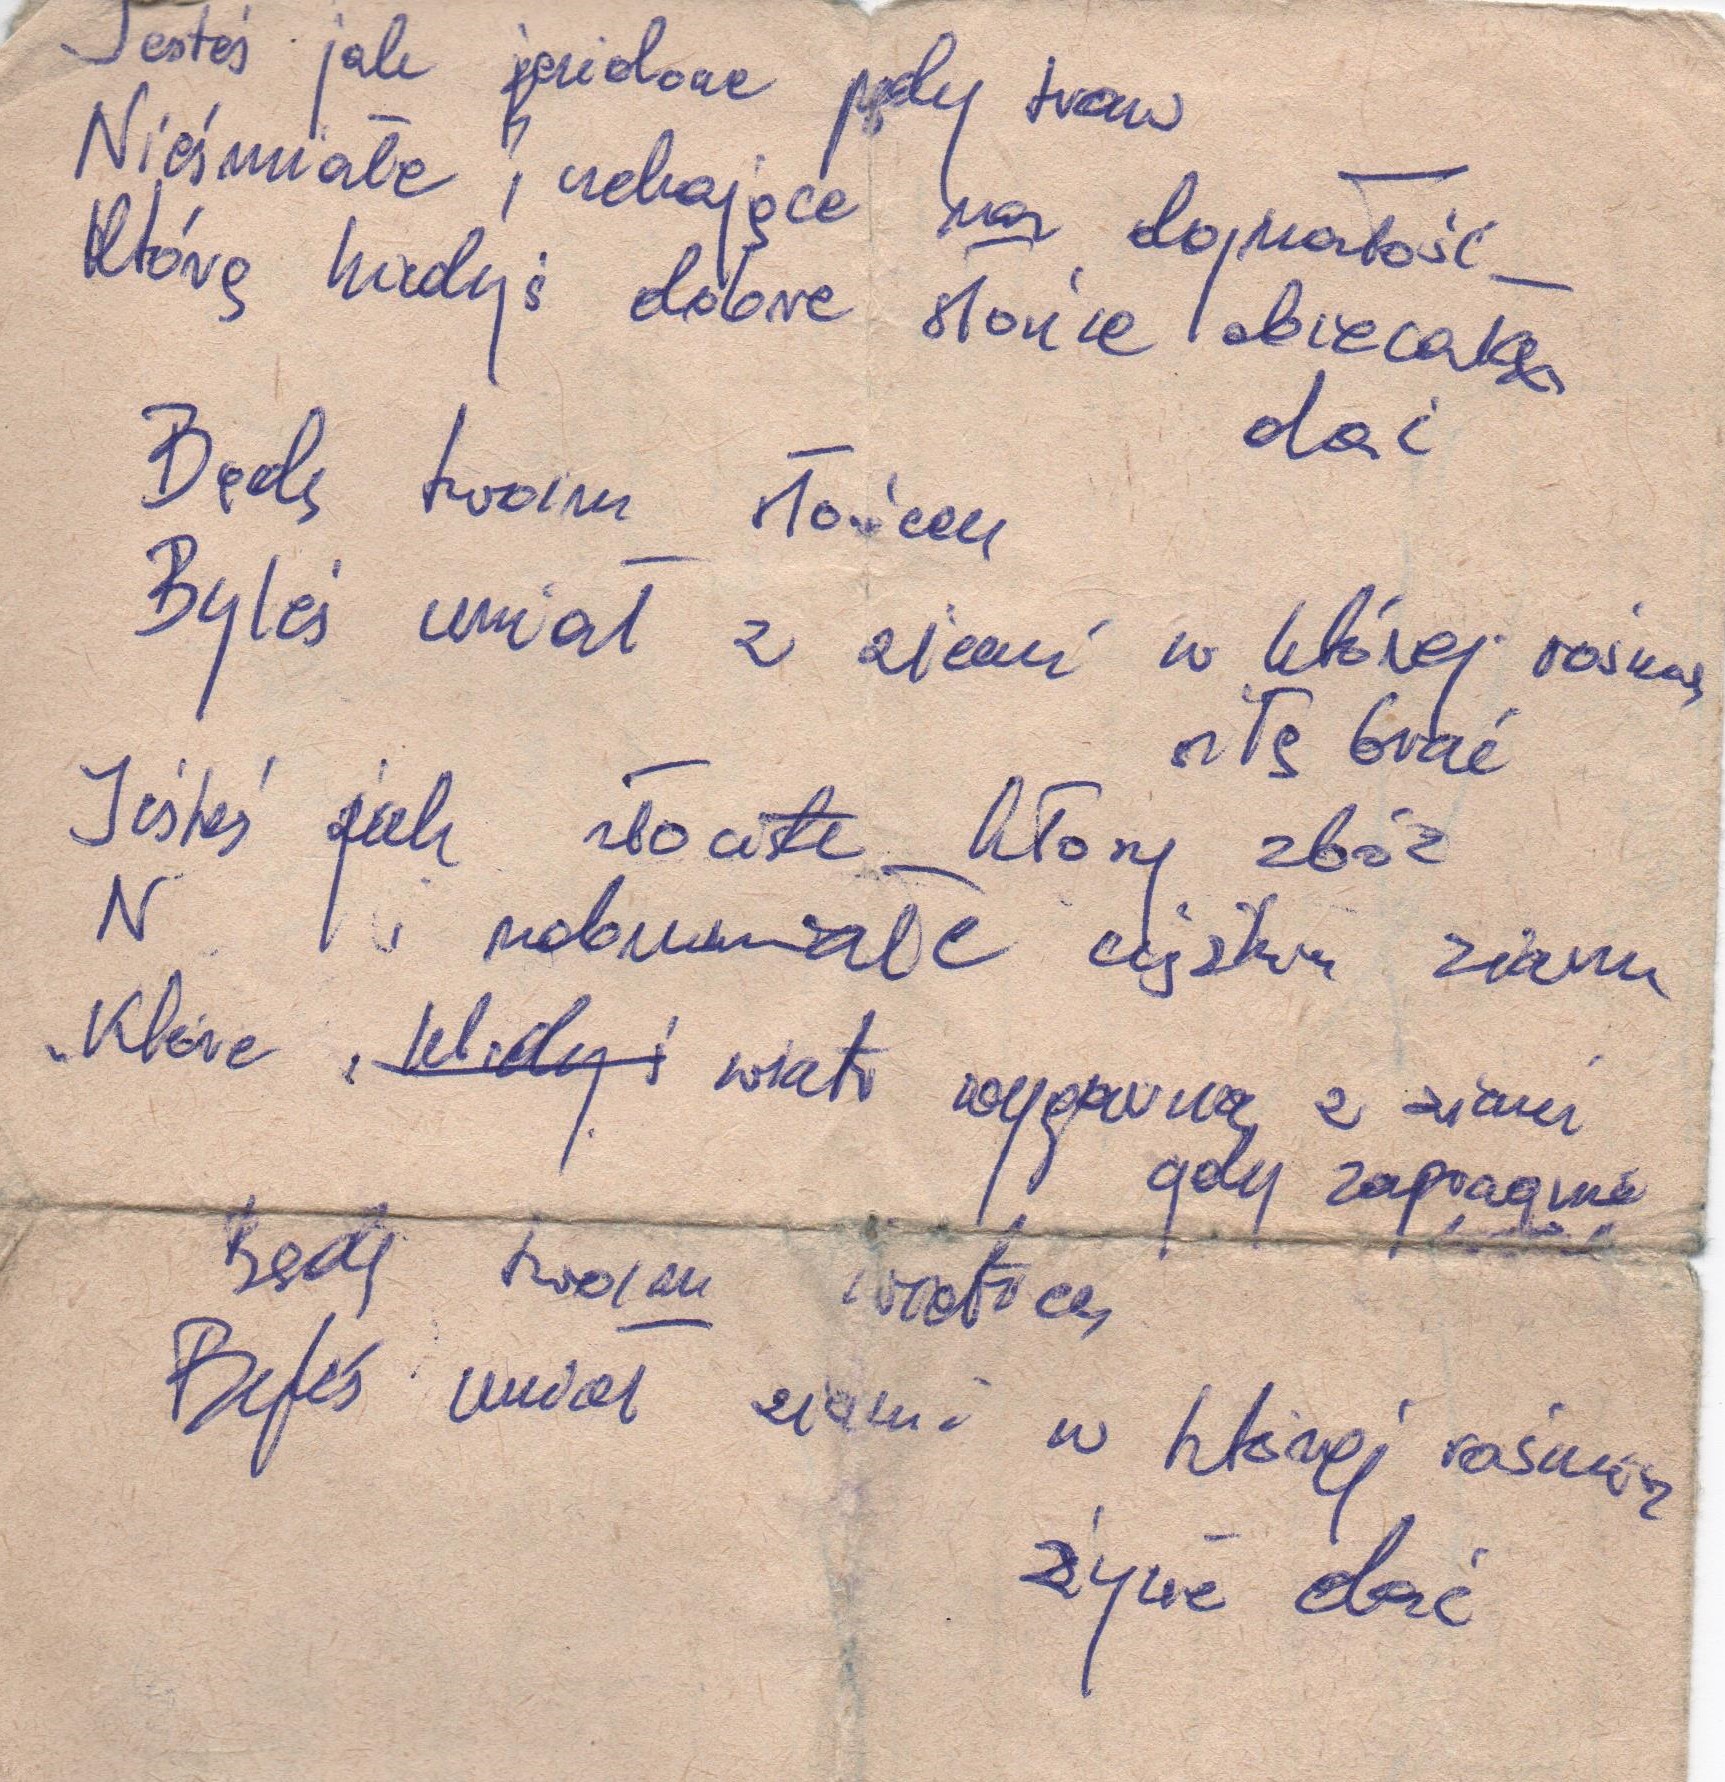 Jesteś jak pędy traw
Nieśmiałe, czekające na dojrzałość
Którą kiedyś dobre słońce obiecało
dać
Będę twoim słońcem
Byleś umiał z ziemi w której rośniesz
siłę brać
Jesteś jak złociste kłosy zbóż
N i nabrzmiałe ziaren
Które, kiedyś wiatr wygarnia z ziemi
gdy zapragnie
Będę twoim wiatrem
Byleś umiał ziemi w której rośniesz
żywe dać